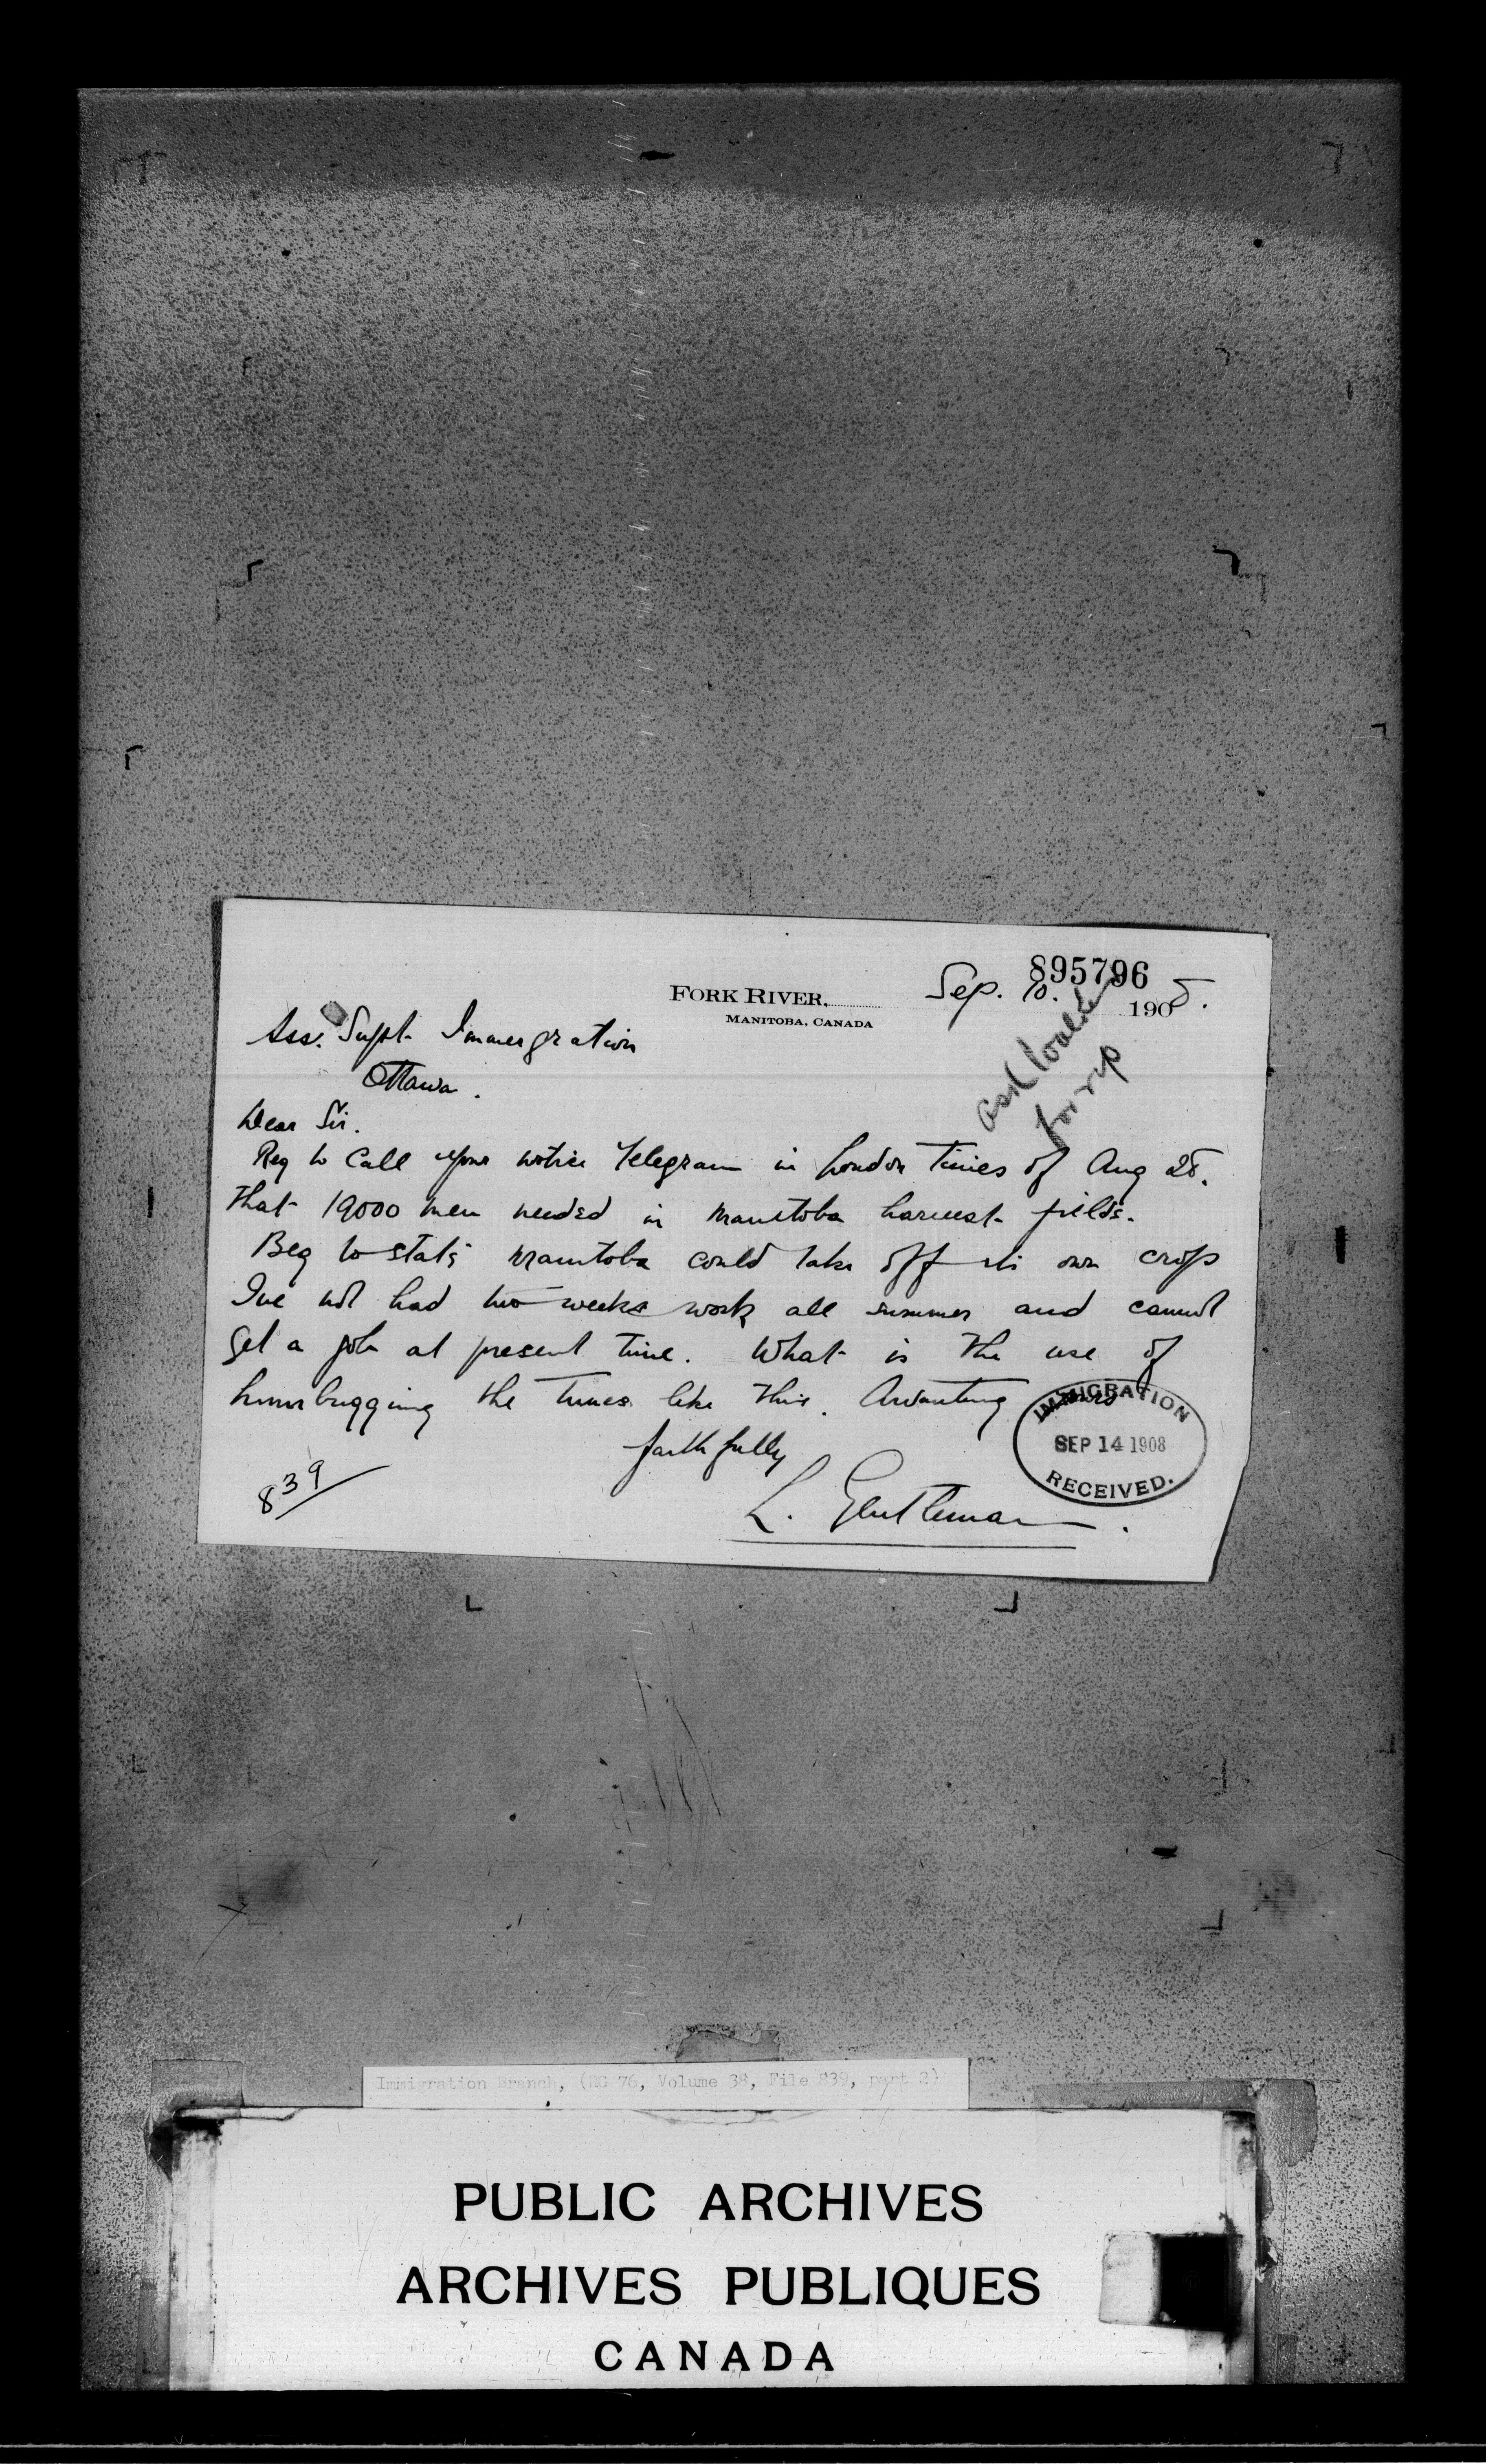 895796
FORK RIVER, Sep. 10. 1908.
MANITOBA, CANADA
Ass. Supt. Immergration
Ottawa.
ask
for rep
Dear Sir.
Beg to Call your notice Telegram in London Times of Aug 28.
that 19000 men needed in Manitoba harvest fields.
Beg to state Manitoba could take off its own crops
Ive not had two weeks work all summer and cannot
get a job at present time. What is the use of
humbugging the Times like this. Awaiting yours
faithfully
L. Gentleman.
839
IMMIGRATION
SEP 14 1908
RECEIVED.
Immigration Branch, (RG 76, Volume 38, File 839, part 2)
PUBLIC ARCHIVES
ARCHIVES PUBLIQUES
CANADA